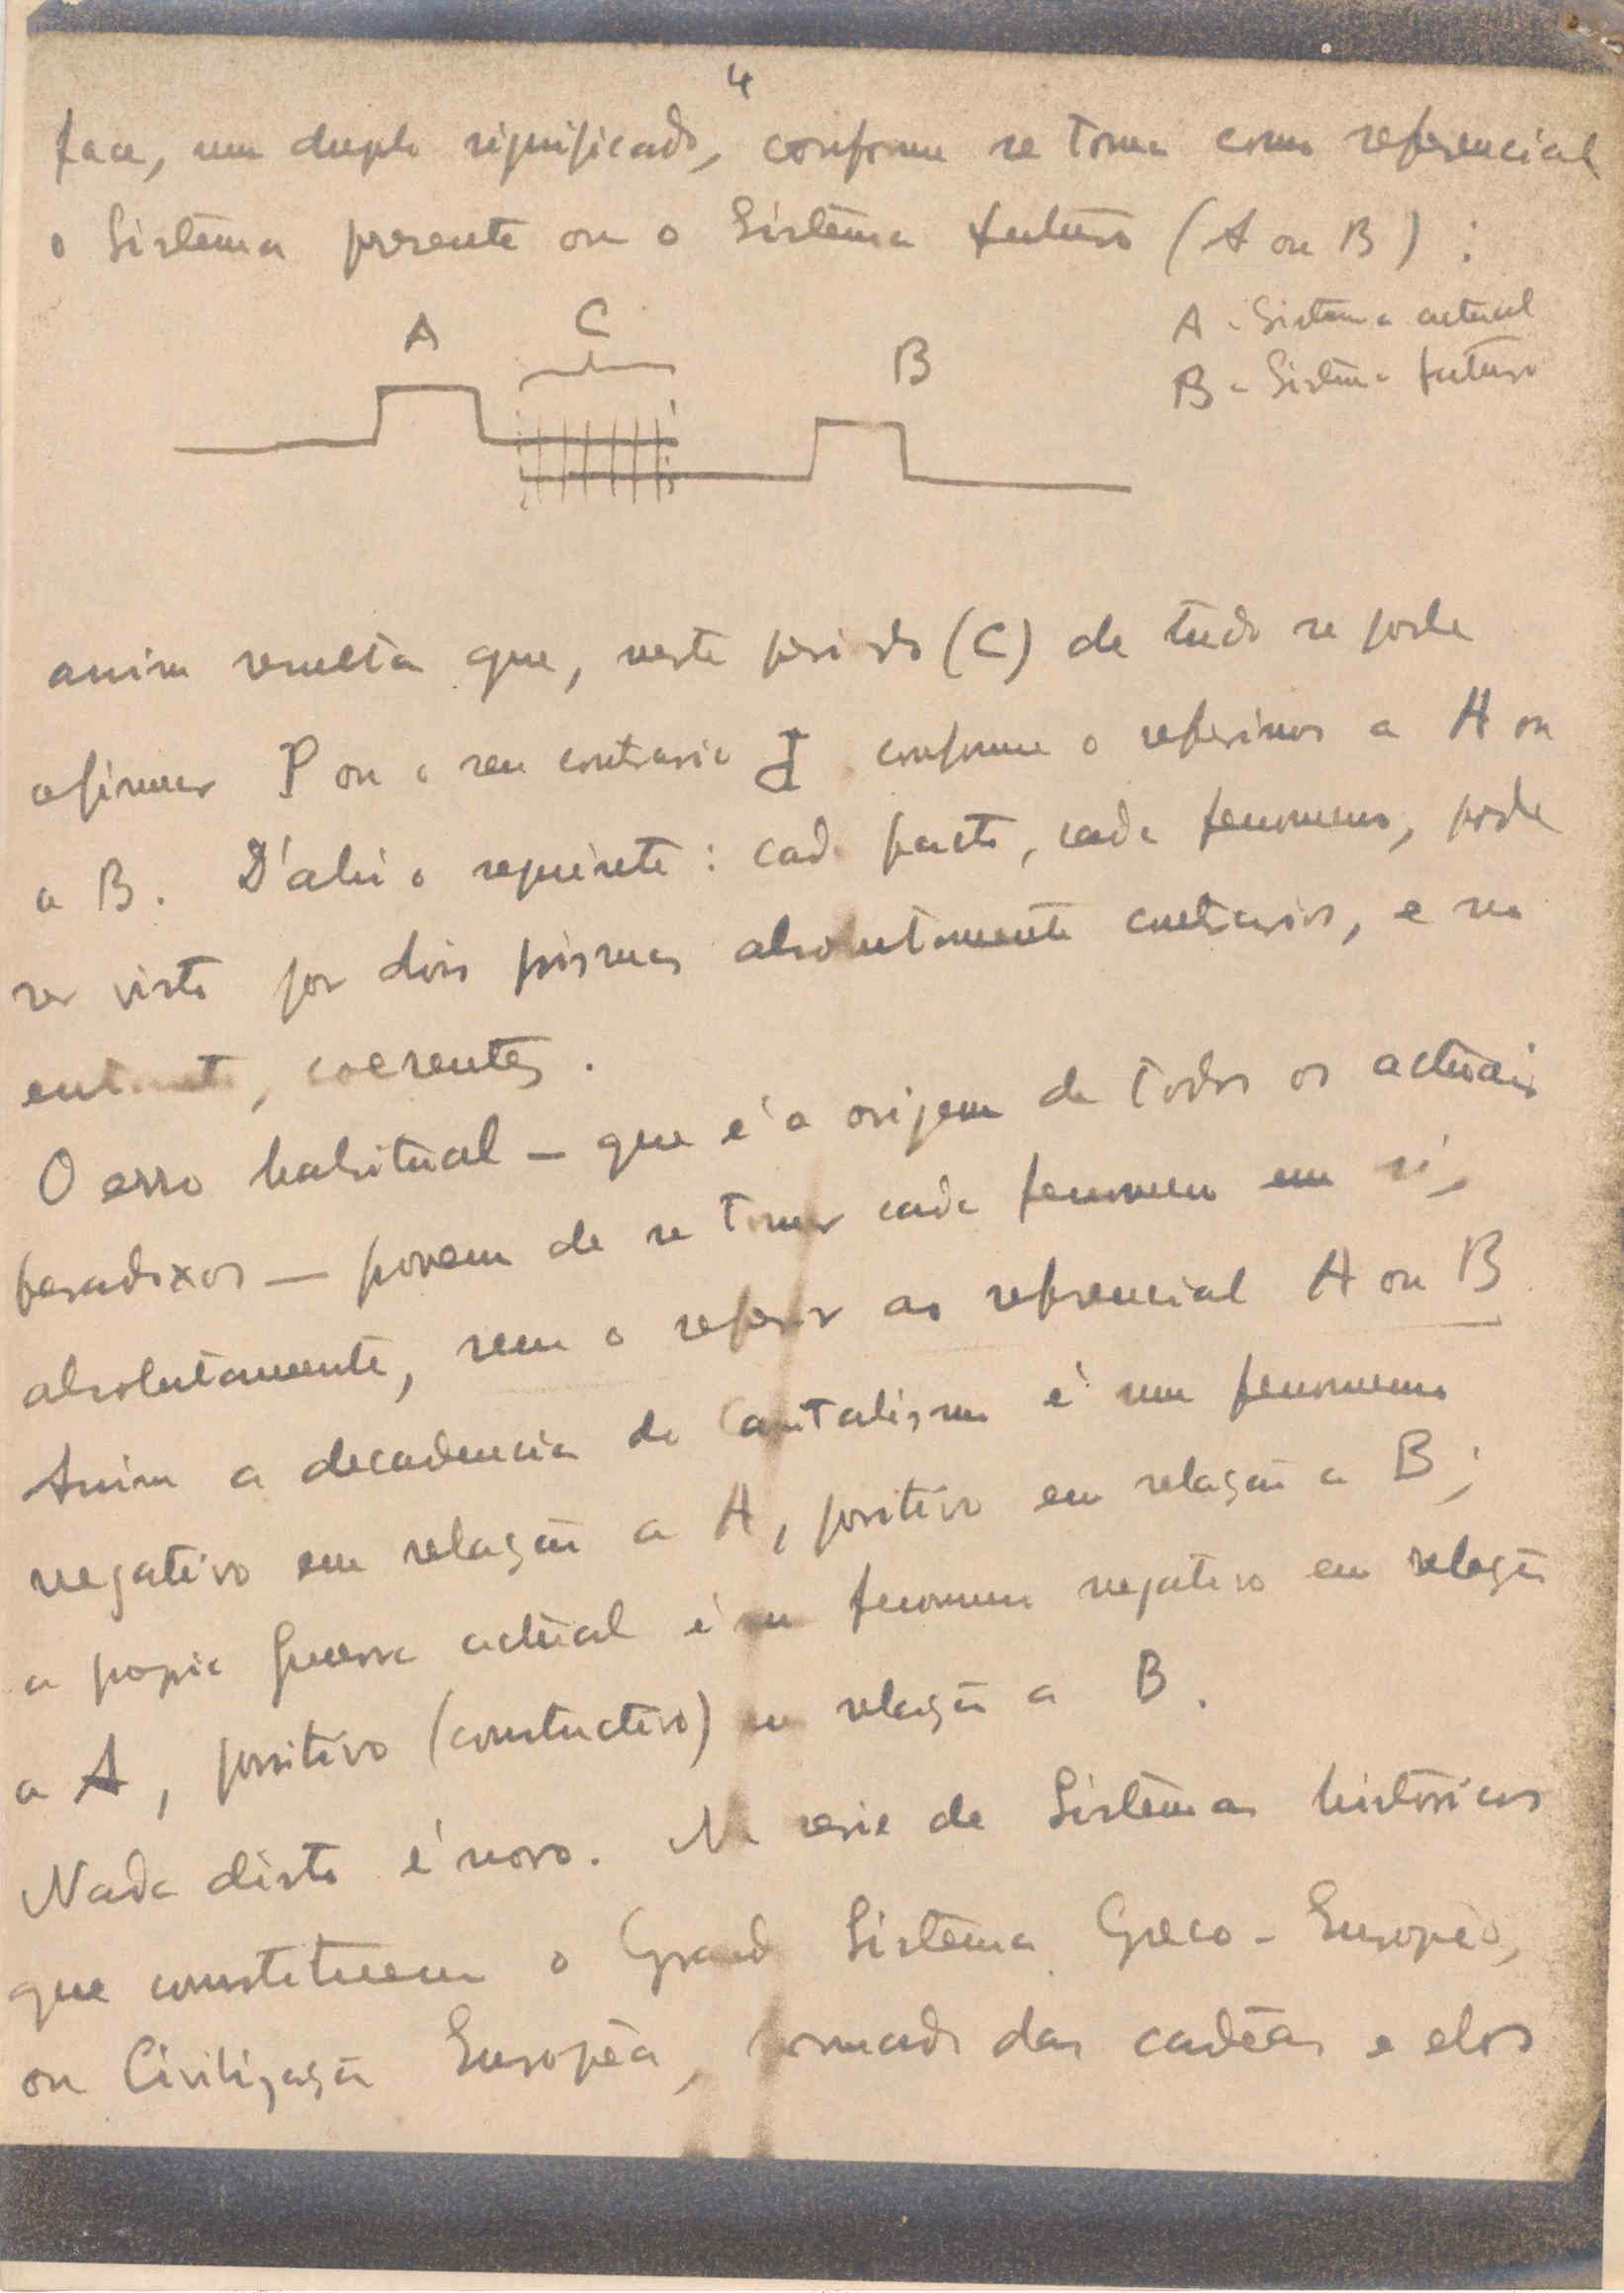 4
face, um duplo significado, conforme se toma como referencial
o Sistema presente ou o Sistema futuro (A ou B) :
A C B
A - Sistema actual
B - Sistema futuro
assim resulta que, neste periodo (C) de tudo se pode
afirmar P ou o seu contrario conforme o referimos a A ou
a B. D'ahi o seguinte : cada facto, cada fenomeno, pode
ser visto por dois prismas absolutamente contrarios, e no
entanto, coerentes.
O erro habitual — que é a origem de todos os actuais
paradoxos — provem de se tomar cada fenomeno em si,
absolutamente, sem o referir ao referencial A ou B
Assim a decadencia do Capitalismo é um fenomeno
negativo em relação a A, positivo em relação a B;
a propia Guerra actual é um fenomeno negativo em relação
a A, positivo (constructivo) em relação a B.
Nada disto é novo. Na serie de Sistemas historicos
que constituem o Grande Sistema Greco-Europeo,
ou Civilização Europêa, formado das cadêas e elos